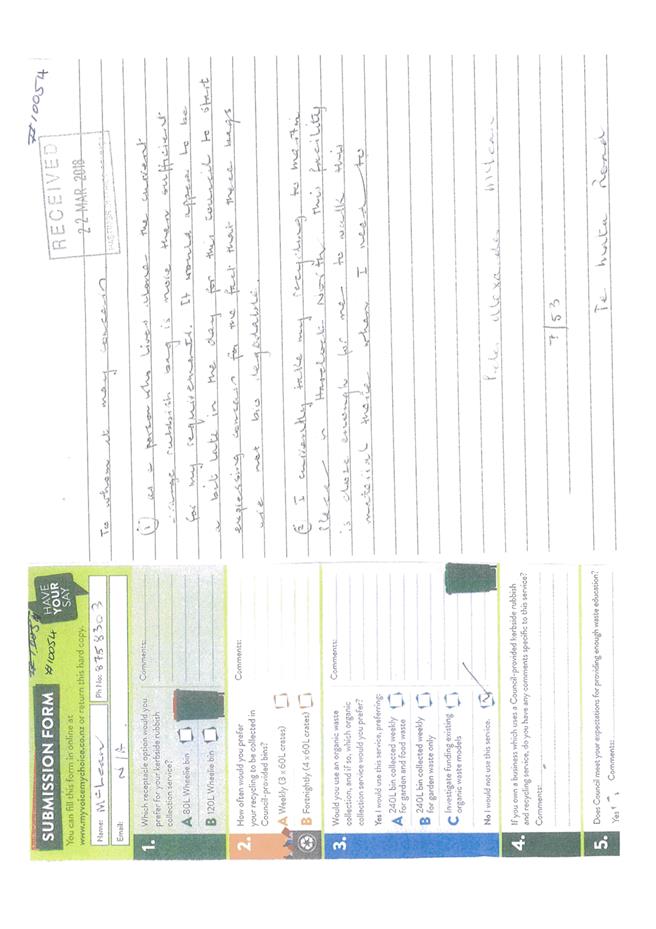 SUBMISSION FORM
#10054
HAVE
YOUR
SAY
You can fill this form in online at
www.myvoicemychoice.co.nz or return this hard copy.
Name: McLean Ph No: 8758303
Email: N/A
1. Which receptacle option would you
prefer for your kerbside rubbish
collection service?
A 80L Wheelie bin
B 120L Wheelie bin
Comments:
2. How often would you prefer
your recycling to be collected in
Council-provided bins?
A Weekly (3 x 60L crates)
B Fortnightly (4 x 60L crates)
Comments:
3. Would you use an organic waste
collection, and if so, which organic
collection service would you prefer?
Yes I would use this service, preferring:
A 240L bin collected weekly
for garden and food waste
B 240L bin collected weekly
for garden waste only
C Investigate funding existing
organic waste models
No I would not use this service.
Comments:
4. If you own a business which uses a Council-provided kerbside rubbish
and recycling service, do you have any comments specific to this service?
Comments:
5. Does Council meet your expectations for providing enough waste education?
Yes Comments:
#10054
RECEIVED
22 MAR 2018
To whom it may concern
(1) as a person who lives alone the current
orange rubbish bag is more then sufficient
for my requirements. It would appear to be
a bit late in the day for this council to start
expressing concern for the fact that these bags
are not bio degradable.
(2) I currently take my recycling to Martin
Place in Havelock North this facility
is close enough for me to walk this
material there when I need to
Alexander McLean
7/53
Te Mata Road